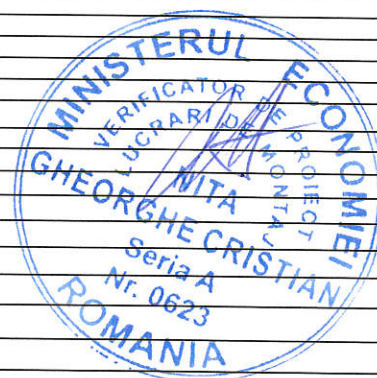 MINISTERUL ECONOMIEI
VERIFICATOR DE PROIECT
LUCRARI DE MONTAJ
NITA
GHEORGHE CRISTIAN
Seria A
Nr. 0623
ROMANIA